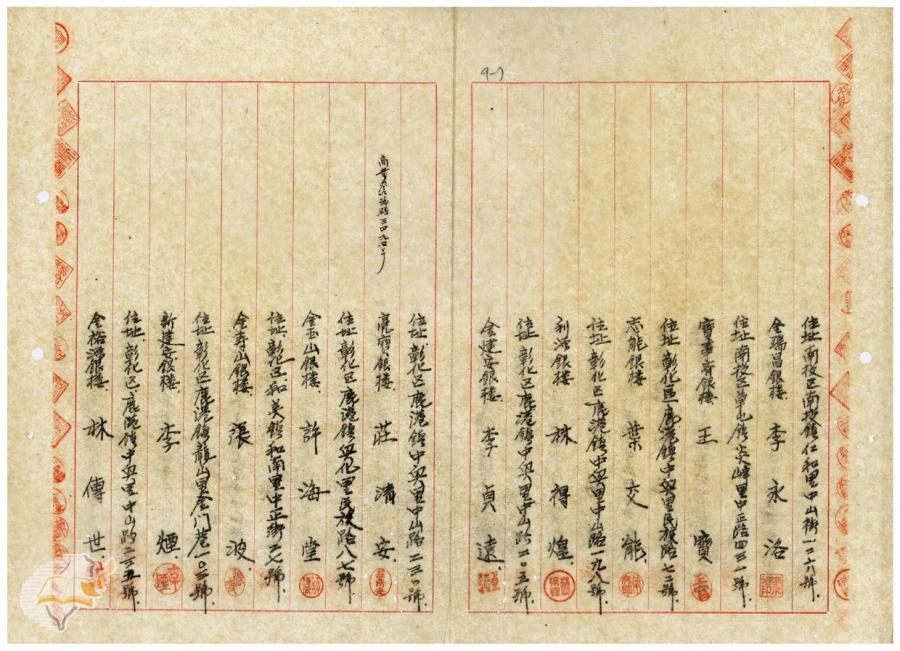 9-7
住址 南投区南投鎮仁和里中山街一二六號.
金瑞昌銀楼. 李永洛
住址 南投区草屯鎮炎峰里中正路四三一號.
寶華齋銀楼 王寶
住址 彰化區鹿港鎮中興里民族路七二號
志能銀楼 葉交能.
住址 彰化区鹿港鎮中興里中山路一九八號.
利源銀楼. 林得煌
住址 彰化区鹿港鎮中興里中山路二〇五號.
金建安銀楼. 李貞遠
住址. 彰化区鹿港鎮中興里中山路二三〇號.
亮寶銀楼. 莊清安.
住址. 彰化区鹿港鎮興化里民族路八七號.
金玉山銀楼. 許海堂
住址. 彰化区和美鎮和南里中正街二七號.
金寿山銀楼. 張波
住址 彰化区鹿港鎮龍山里金门巷一〇三號.
新建安銀楼. 李煙.
住址. 彰化区鹿港鎮中興里中山路二三五號.
金裕源銀楼. 林傳世.